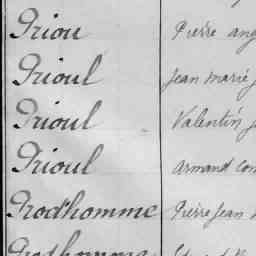 Priou Pierre ang
Prioul Jean marie
Prioul Valentin
Prioul armand com
Prod'homme Pierre Jean
Prodhomme